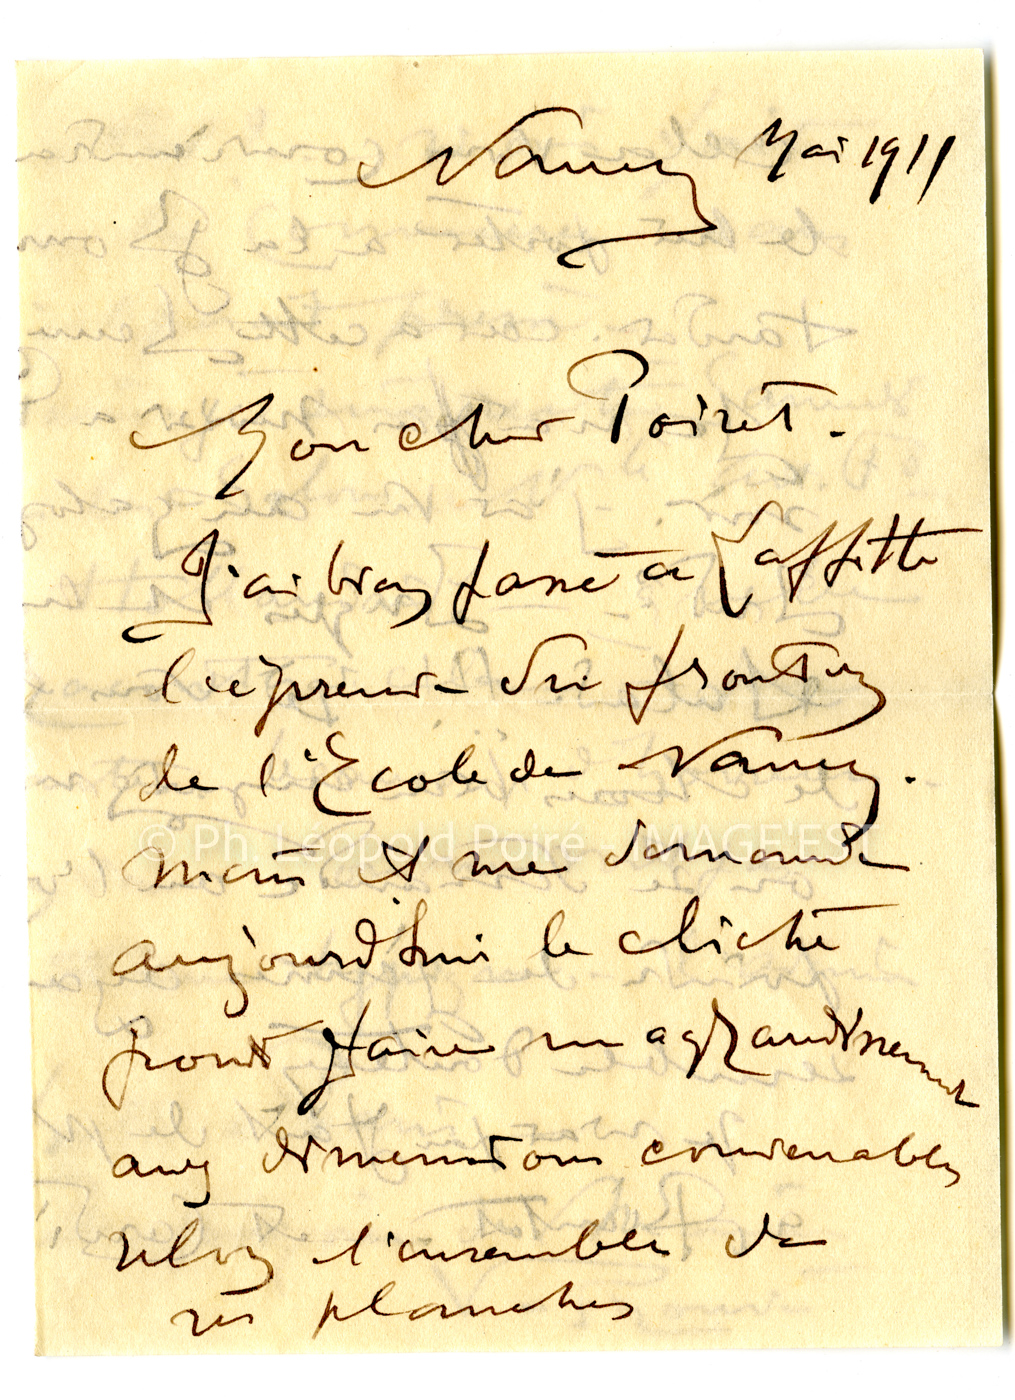 Nancy Mai 1911
Mon cher Poiret.
J'ai bien passé à Laffitte
l'épreuve du fronton
de l'Ecole de Nancy.
mais il me demande
aujourd'hui le cliché
pour faire un agrandissement
aux dimensions convenables
selon l'ensemble de
ses planches
© Ph. Léopold Poiré - IMAGE'EST